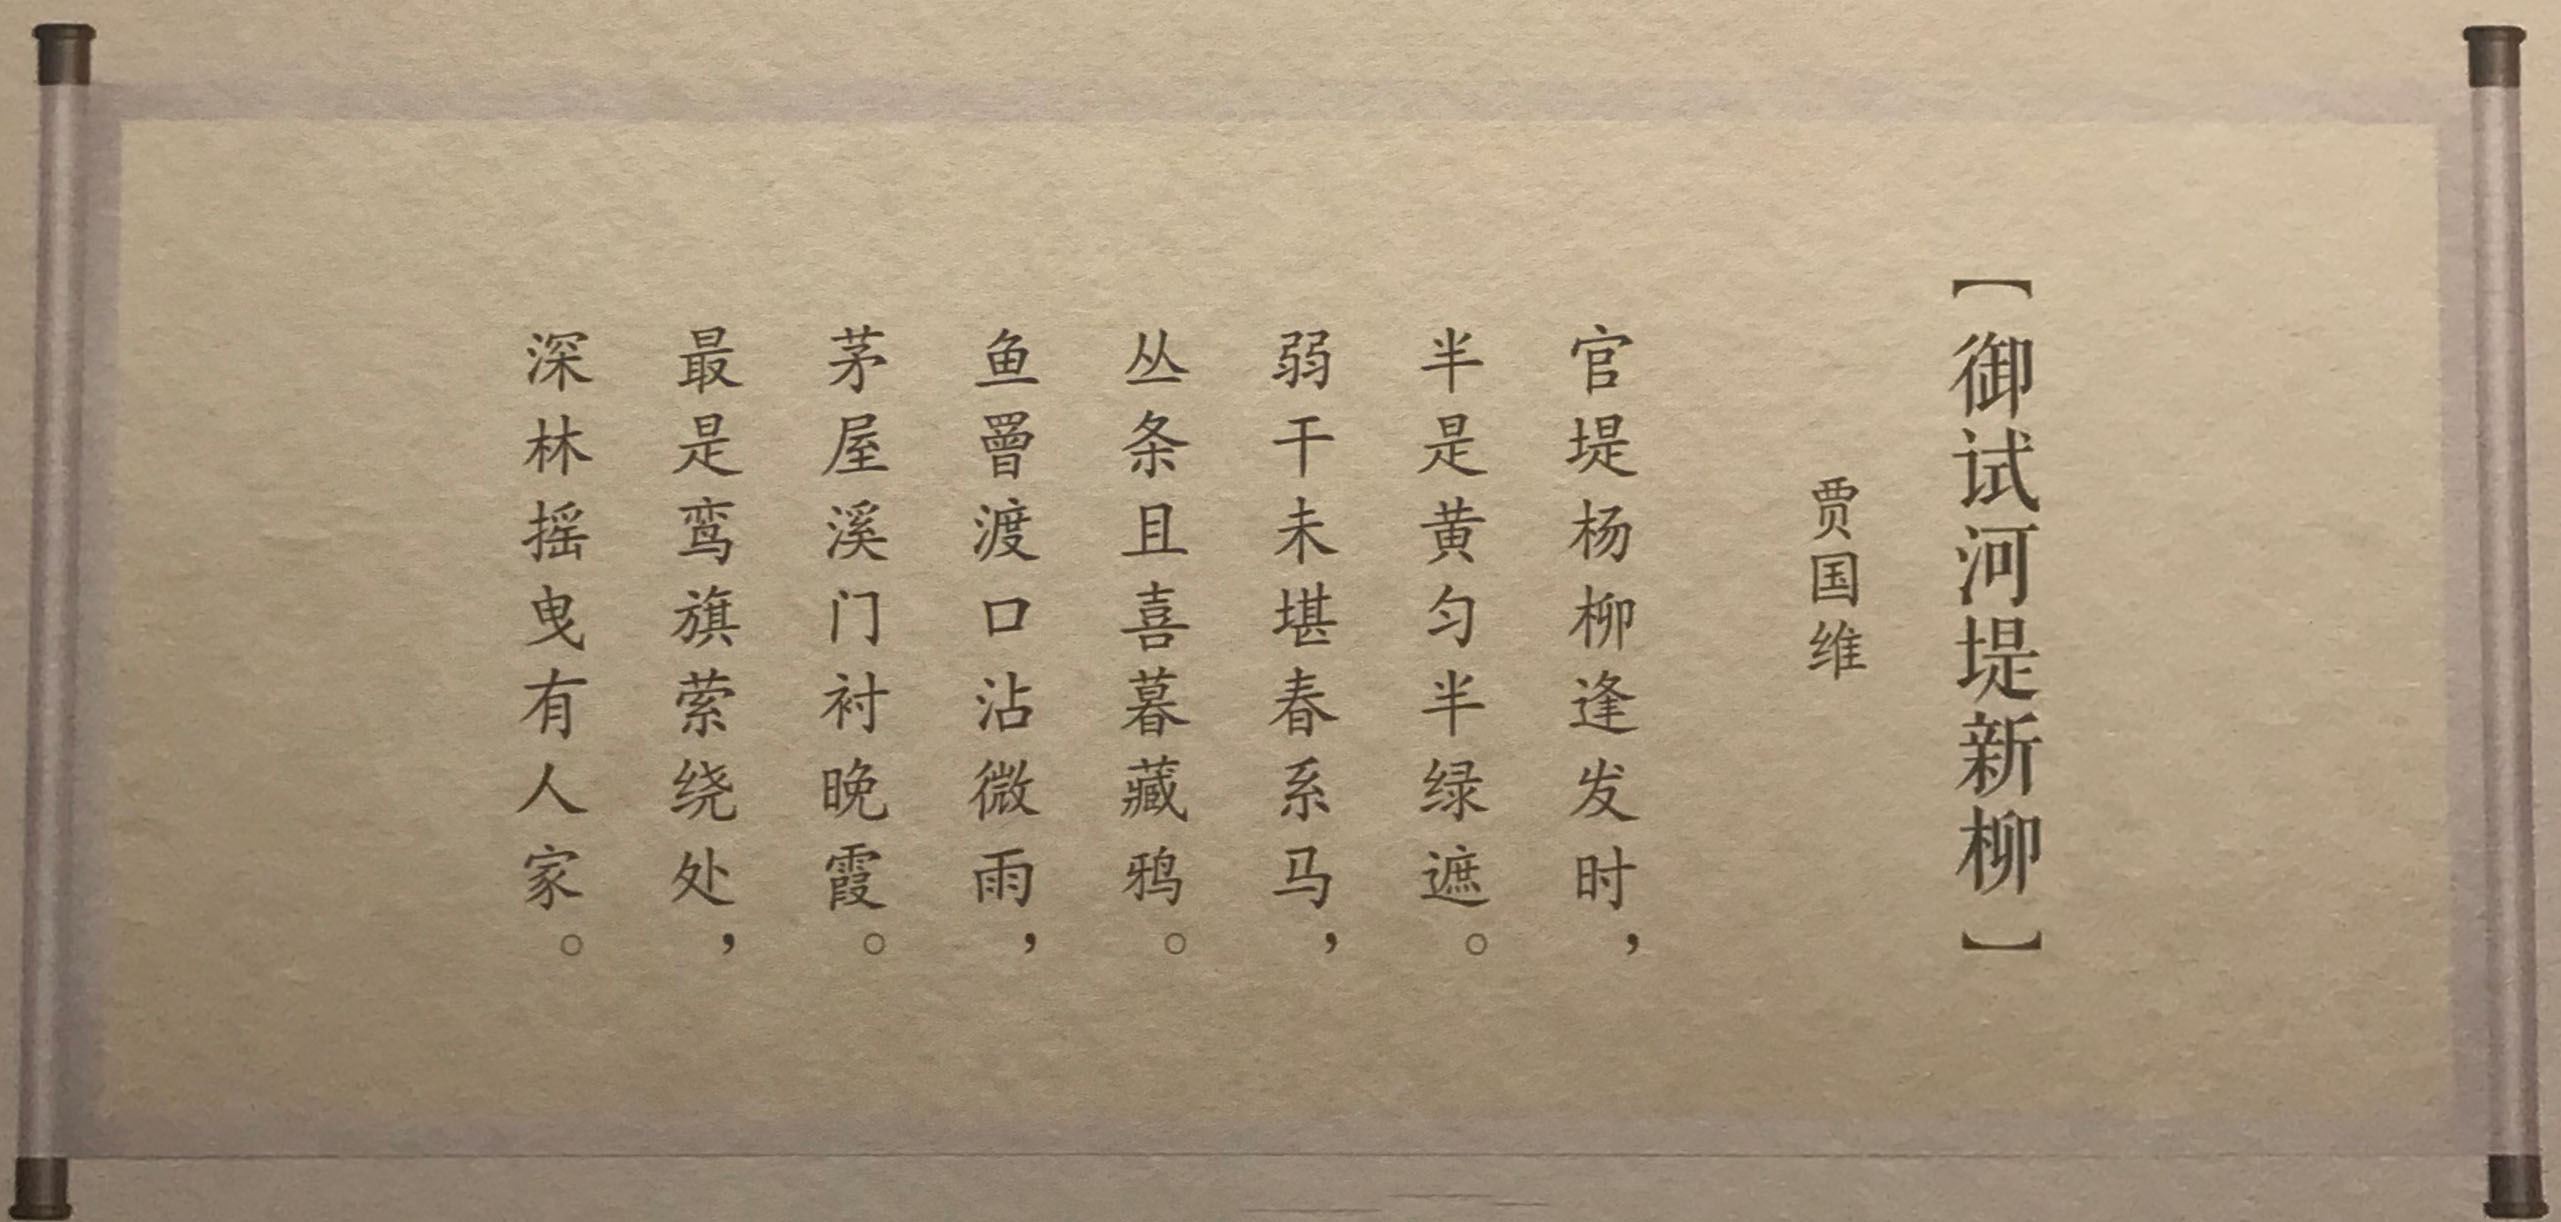 【御试河堤新柳】
贾国维
官堤杨柳逢发时，
半是黄匀半绿遮。
弱干未堪春系马，
丛条且喜暮藏鸦。
鱼罾渡口沾微雨，
茅屋溪门衬晚霞。
最是鸾旗萦绕处，
深林摇曳有人家。